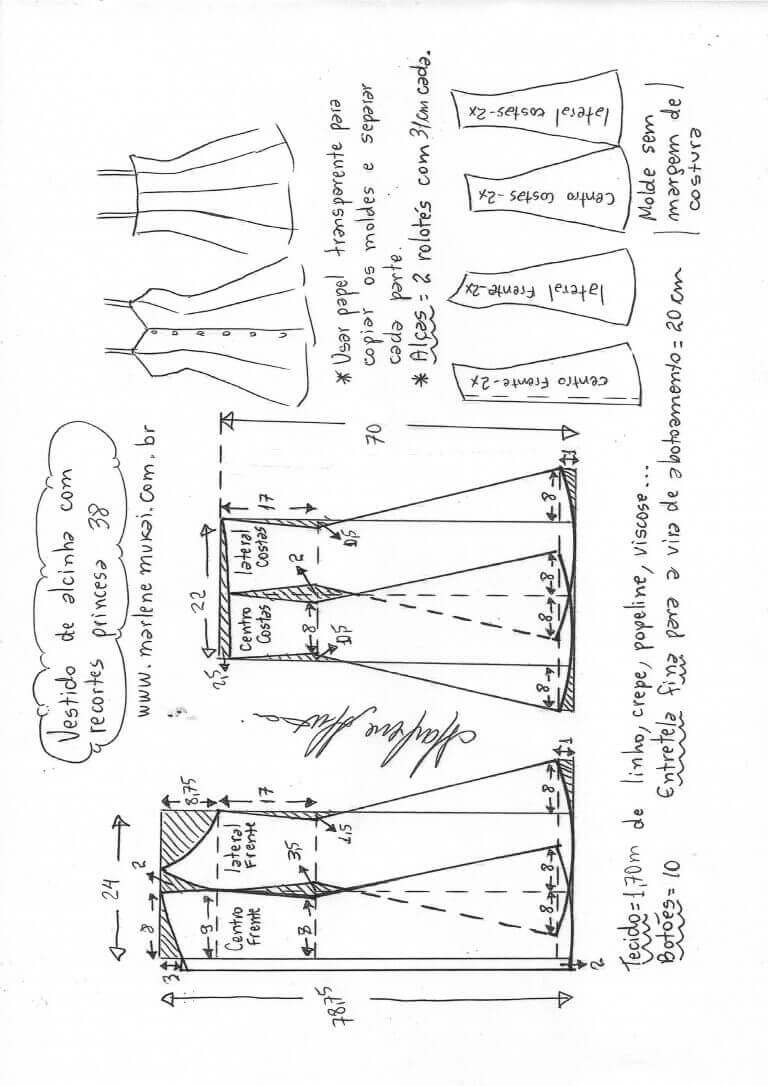 Vestido de alcinha com
recortes princesa 38
www.marlenemukai.com.br
* Usar papel transparente para
copiar os moldes e separar
cada parte.
* Alças = 2 rolotés com 31cm cada.
24
8
2
8,75
3
9
17
Centro
Frente
lateral
Frente
8
3,5
1,5
78,75
8
8
8
1
2
22
2,5
17
Centro
Costas
lateral
Costas
8
2
1,5
1,5
70
8
8
8
8
1
centro Frente-2x
lateral Frente-2x
Centro Costas-2x
lateral costas-2x
Molde sem
margem de
costura
Tecido=1,70m de linho, crepe, popeline, viscose...
Botões=10 Entretela fina para a vira de abotoamento=20cm